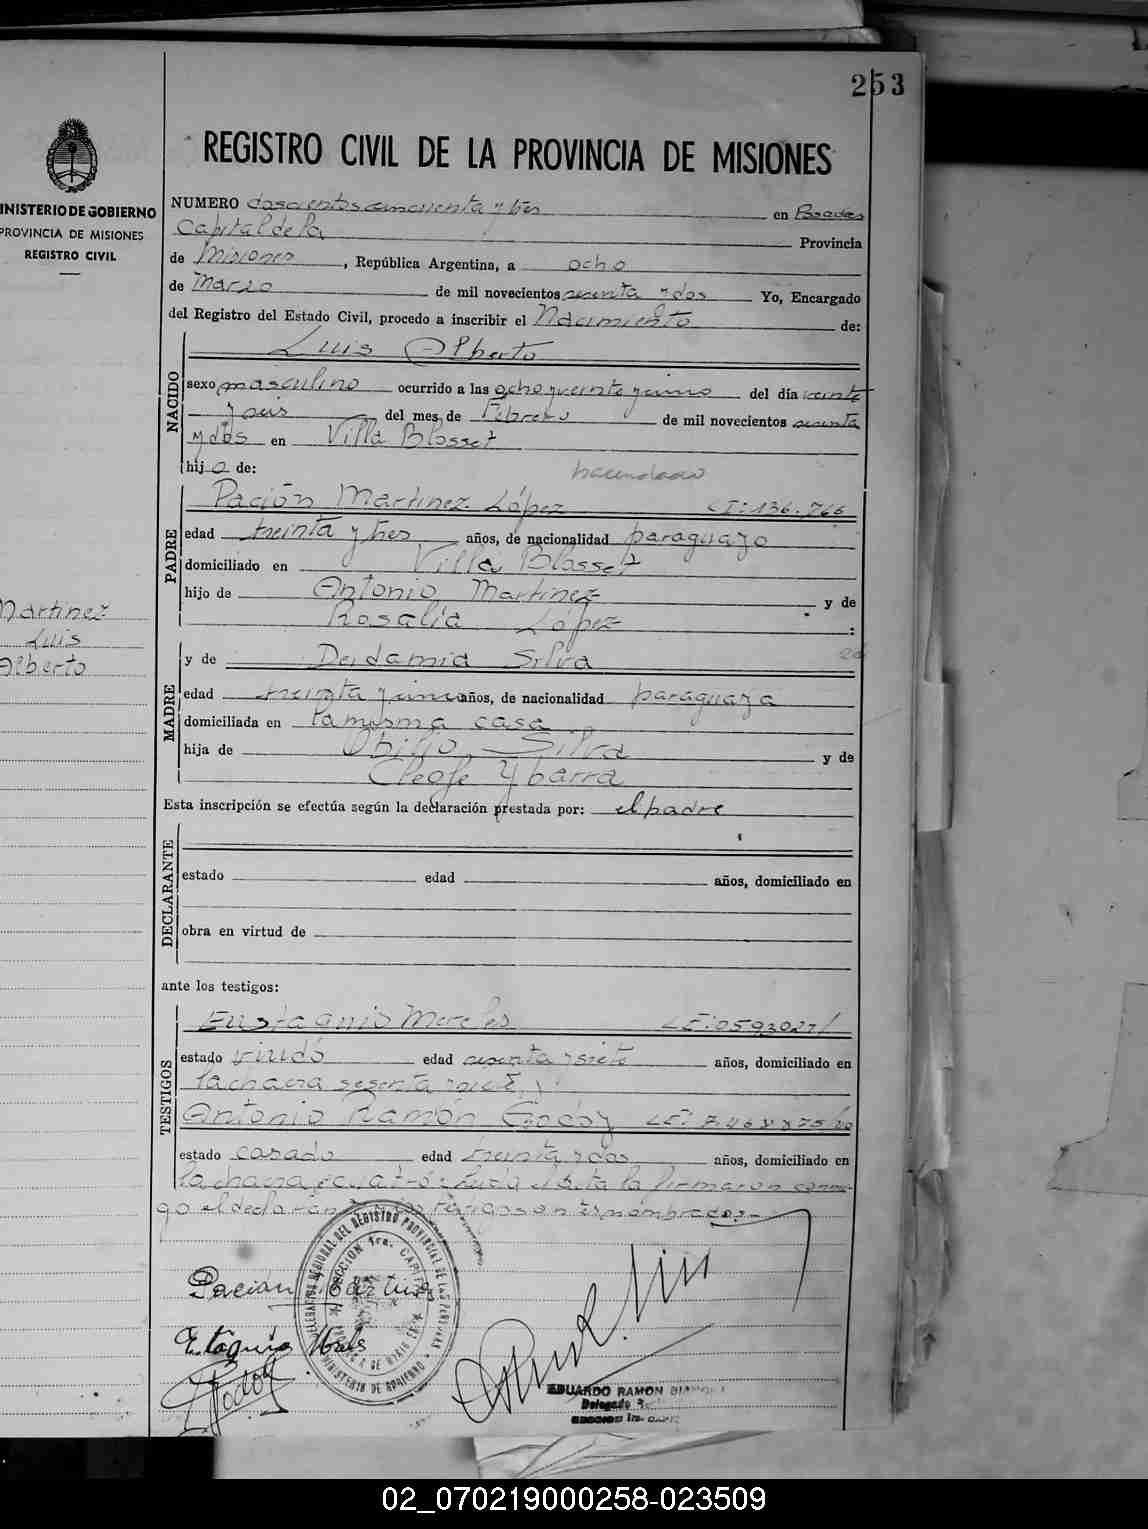 253
REGISTRO CIVIL DE LA PROVINCIA DE MISIONES
MINISTERIO DE GOBIERNO
PROVINCIA DE MISIONES
REGISTRO CIVIL
NUMERO doscientos cincuenta y tres en Posadas
Capital de la Provincia
de Misiones, República Argentina, a ocho
de Marzo de mil novecientos sesenta y dos Yo, Encargado
del Registro del Estado Civil, procedo a inscribir el Nacimiento de:
NACIDO
Luis Alberto
sexo masculino ocurrido a las ocho y veinte y cinco del día veinte
y seis del mes de Febrero de mil novecientos sesenta
y dos en Villa Blosset
hijo de:
PADRE
Pación Martinez López CI: 136.766
edad treinta y tres años, de nacionalidad paraguayo
domiciliado en Villa Blosset
hijo de Antonio Martinez y de
Rosalía López :
Martinez
Luis
Alberto
MADRE
y de Deidamia Silva
edad treinta y cinco años, de nacionalidad paraguaya
domiciliada en la misma casa
hija de Silva y de
Cleofe Ybarra
Esta inscripción se efectúa según la declaración prestada por: el padre
DECLARANTE
estado edad años, domiciliado en
obra en virtud de
ante los testigos:
TESTIGOS
Eustaquio Mereles LE: 0593027/
estado viudo edad sesenta y siete años, domiciliado en
la chacra sesenta y siete
Antonio Ramón Godoy LE:
estado casado edad treinta y dos años, domiciliado en
la chacra la firmaron conmi-
go el declarante testigos nombrados.-
Pacian Martinez
DELEGACION REGIONAL DEL REGISTRO PROVINCIAL DE LAS PERSONAS
SECCION 1ra. CAPITAL
MINISTERIO DE GOBIERNO
EDUARDO RAMON
Delegado
SECCION 1ra.
02_070219000258-023509